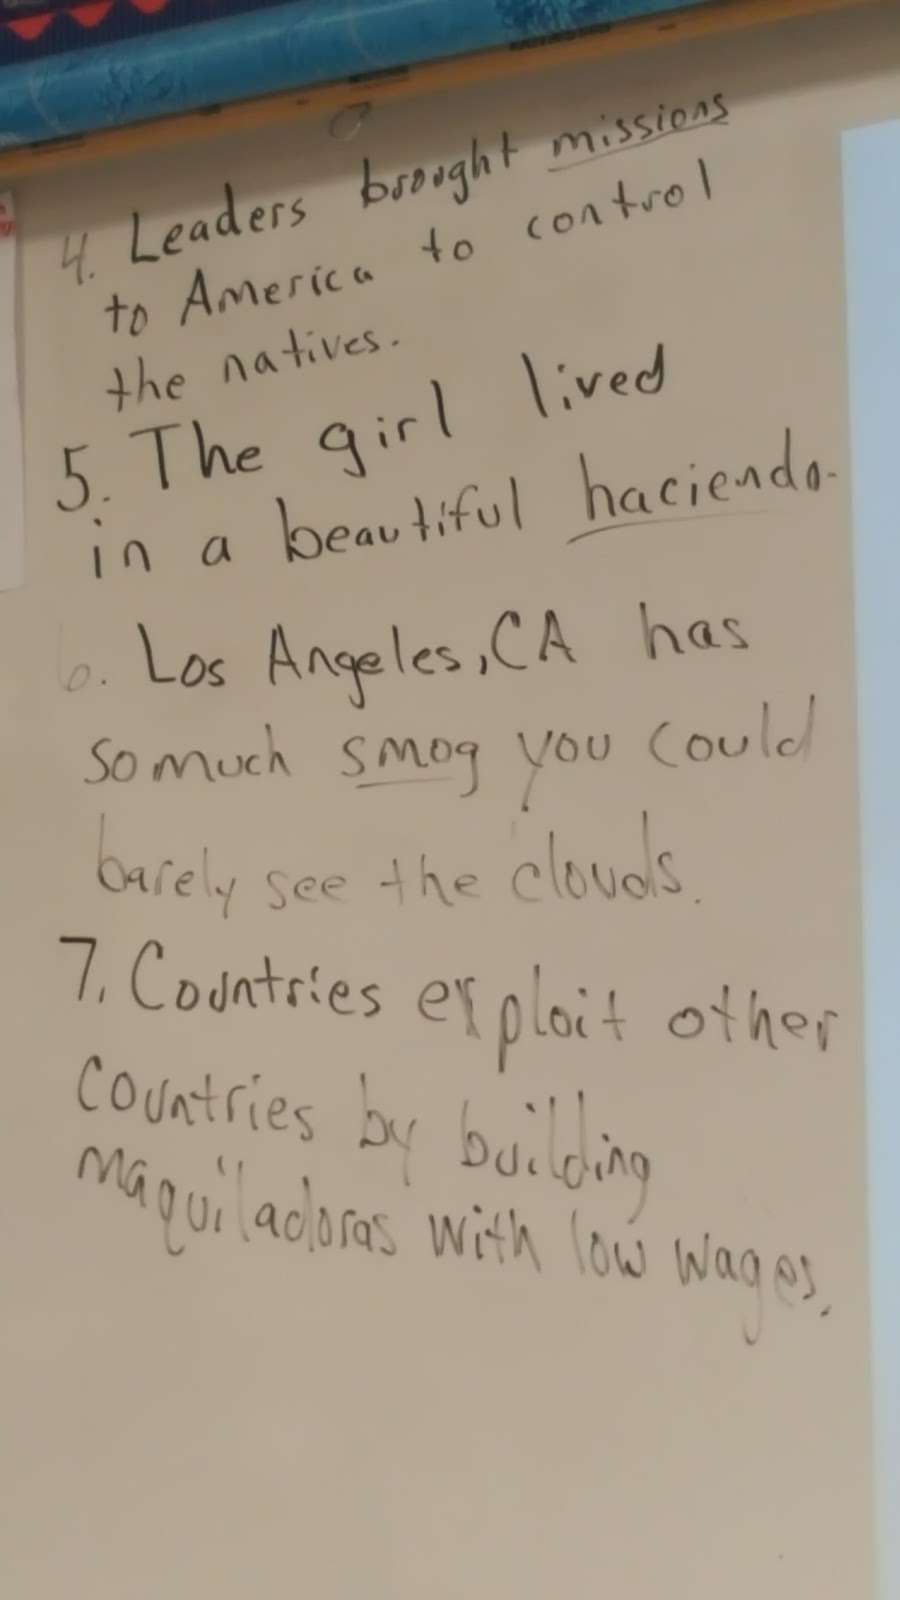 4. Leaders brought missions
to America to control
the natives.
5. The girl lived
in a beautiful hacienda.
6. Los Angeles, CA has
so much smog you could
barely see the clouds.
7. Countries exploit other
countries by building
maquiladoras with low wages.